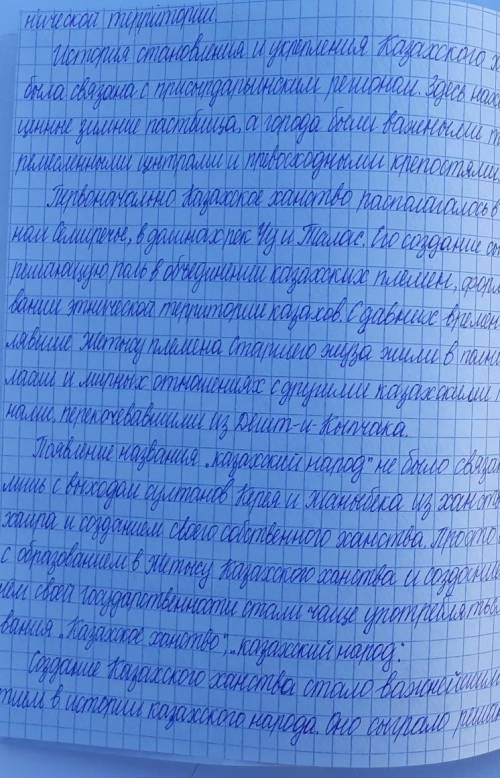 нической территории.
История становления и укрепления Казахского х
была связана с присырдарьинским регионом. Здесь нахо
ценные зимние пастбища, а города были важеными т
ремесленными центрами и превосходными крепостями
Первоначально Казахское ханство располагалось в
ном Семиречье, в долинах рек Чу и Талас. Его создание сы
решающую роль в объединении казахских племен, форм
вание этнической территории казахов. С давних времен
лявшие Жетысу племена Старшего жуза жили в полно
ласии и мирных отношениях с другими казахскими п
нами, перекочевавшими из Дешт-и-Кыпчака.
Появление названия „казахский народ" не было связан
лишь с выходом султанов Керея и Жаныбека из ханств
хаира и созданием своего собственного ханства. Просто
с образованием в Жетысу Казахского ханства и создание
ем своей государственности стали чаще употреблятьс
вания „Казахское ханство", „казахский народ".
Создание Казахского ханства стало важнейшим
тием в истории казахского народа. Оно сыграло решаю